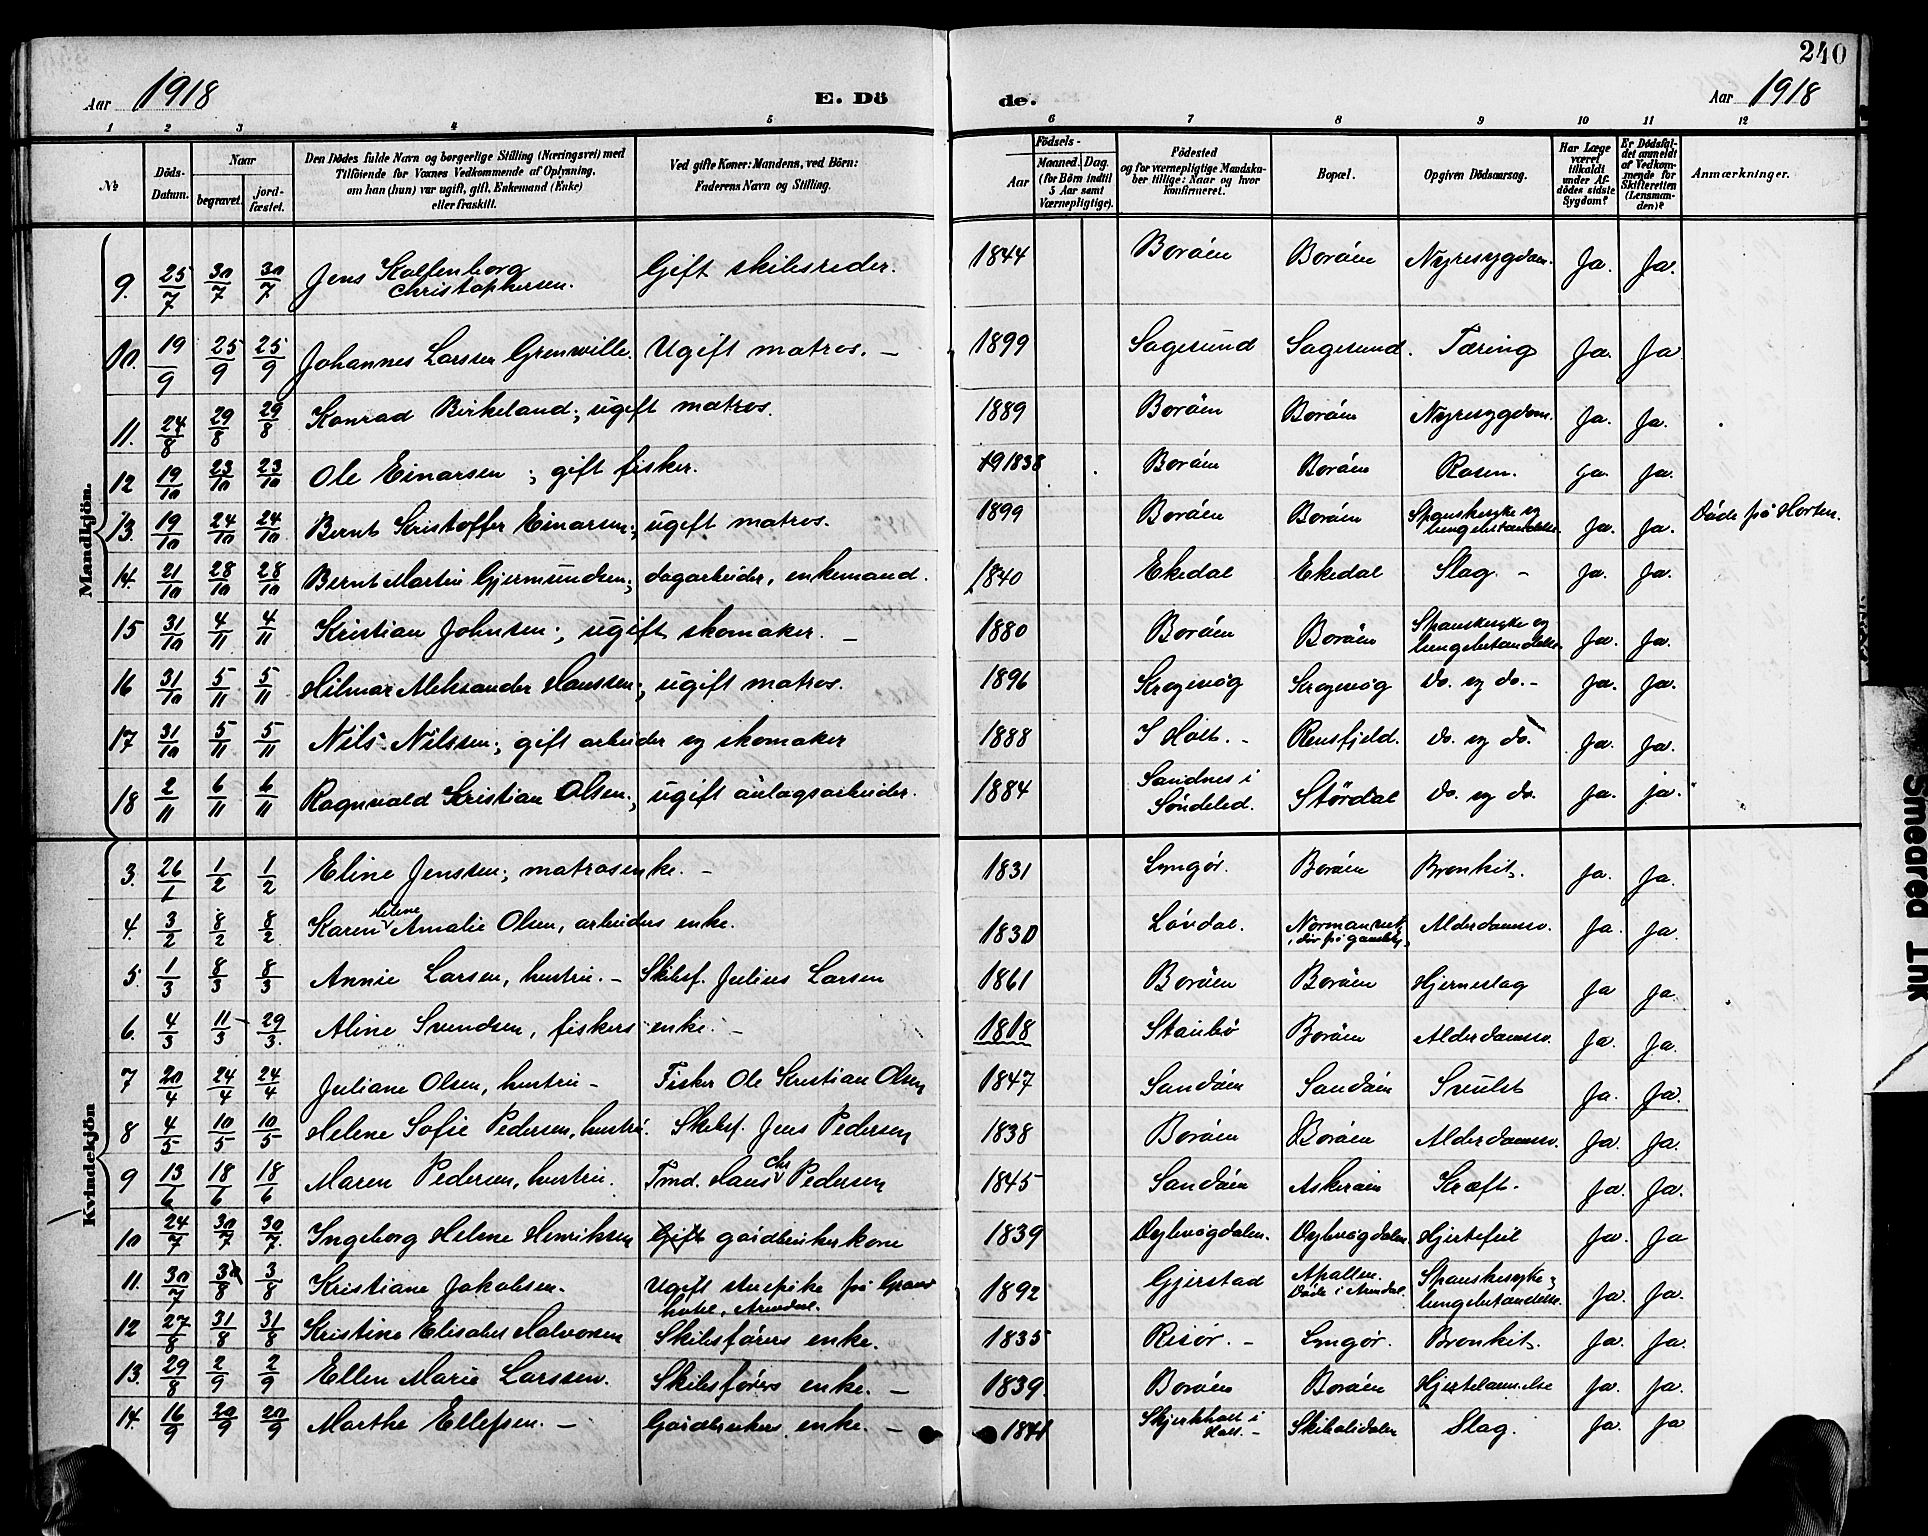 240
Aar 1918
E. Dö
de.
Aar 1918
1 2 3 4 5 6 7 8 9 10 11 12
№
Döds-Datum.
Naar
begravet.
jord-fæstet.
Den Dödes fulde Navn og borgerlige Stilling (Næringsvei) med
Tilföiende for Voxnes Vedkommende af Oplysning,
om han (hun) var ugift, gift, Enkemand (Enke)
eller fraskilt.
Ved gifte Koner: Mandens, ved Börn:
Faderens Navn og Stilling.
Födsels-
Aar
Maaned. Dag.
(for Börn indtil
5 Aar samt
Værnepligtige).
Födested
og for værnepligtige Mandska-
ber tillige: Naar og hvor
konfirmeret.
Bopæl.
Opgiven Dödsaarsag.
Har Læge
været
tilkaldt
under Af-
dödes sidste
Sygdom?
Er Dödsfal-
det anmeldt
af Vedkom-
mende for
Skifteretten
(Lensman-
den)?
Anmærkninger.
Mandkjön.
9. 25/7 30/7 30/7 Jens Kallenborg Christophersen. Gift skibsreder. 1844 Boröen Boröen Nyresygdom. Ja. Ja.
10. 19/9 25/9 25/9 Johannes Larssen Grenwille. Ugift matros. – 1899 Sagesund Sagesund. Tæring Ja. Ja
11. 24/8 29/8 29/8 Konrad Birkeland; ugift matros. 1889 Boröen Boröen Nyresygdom. Ja. Ja.
12 19/10 23/10 23/10 Ole Einarsen; gift fisker. 1838 Boröen Boröen Rosen. Ja. Ja.
13. 19/10 24/10 24/10 Bernt Kristoffer Einarsen; ugift matros. 1899 Boröen Boröen Spanskesyke og lungebetændelse. Ja. Ja. Döde på Horten.
14. 21/10 28/10 28/10 Bernt Martin Gjermundsen; dagarbeider, enkemand. 1840 Ekedal Ekedal Slag. – Ja. Ja.
15 31/10 4/11 4/11 Kristian Johnsen; ugift skomaker. – 1880 Boröen Boröen Spanskesyke og lungebetændelse. Ja. Ja.
16 31/10 5/11 5/11 Hilmar Aleksander Hanssen; ugift matros. 1896 Krogevåg Krogevåg do. og do. – Ja. Ja.
17 31/10 5/11 5/11 Nils Nilssen; gift arbeider og skomaker 1888 I Holt. – Rensfjeld. do. og do. Ja. Ja.
18 2/11 6/11 6/11 Ragnvald Kristian Olsen; ugift anlagsarbeider. 1884 Sandnes i Söndeled. Stördal do. og do. Ja. ja.
Kvindekjön
3. 26/1 1/2 1/2 Eline Jenssen; matrosenke. – 1831 Lyngör. Boröen Bronkit. Ja. Ja.
4. 3/2 8/2 8/2 Karen Helene Amalie Olsen, arbeiders enke. 1830 Lövdal. Alderdomssv. Ja. Ja.
5. 1/3 8/3 8/3 Annie Larsen, hustru. – Skibsf. Julius Larsen 1861 Boröen Boröen Hjerneslag Ja Ja.
6. 4/3 11/3 29/3. Aline Svendsen, fiskers enke. – 1818 Staubö Boröen Alderdomssv. Ja. Ja.
7 20/4 24/4 24/4 Juliane Olsen, hustru – Fisker Ole Kristian Olsen 1847 Sandöen Sandöen Svulst Ja. Ja.
8 4/5 10/5 10/5 Helene Sofie Pedersen, hustru. Skibsf. Jens Pedersen 1838 Boröen Boröen Alderdomssv. Ja. Ja.
9 13/6 18/6 18/6 Maren Pedersen, hustru. Tmd. Hans Chr Pedersen 1845 Sandöen Askeröen Kræft. Ja. Ja.
10 24/7 30/7 30/7. Ingeborg Helene Henriksen Gift gårdbrukerkone 1839 Dybvågdalen. Dybvågdalen. Hjertefeil Ja. Ja
11. 30/7 3/8 3/8 Kristiane Jakobsen. Ugift stuepike på Grand hotel, Arendal. 1892 Gjerstad Apallen. Döde i Arendal. Spanskesyke & lungebetændelse. Ja. Ja.
12 27/8 31/8 31/8 Kristine Elisabet Halvorsen Skibsförers enke. 1835 Risör. – Lyngör. Bronkit. Ja. Ja.
13. 29/8 2/9 2/9 Ellen Marie Larssen. Skibsförers enke. – 1839. Boröen Boröen Hjertelammelse Ja. Ja.
14. 16/9 20/9 20/9 Marthe Ellefsen. – Gårdbrukers enke. – 1841 Skjerkholt i Holt. – Skibalidalen Slag. Ja. Ja
Smeared Ink